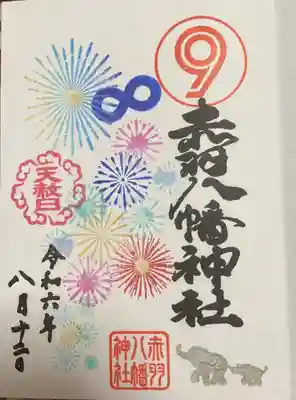 9
赤羽八幡神社
8
天赦日
令和六年
八月十二日
赤羽
八幡
神社